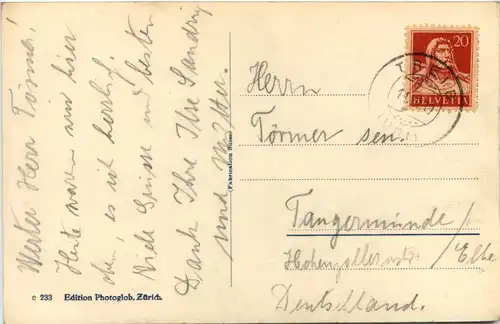 Werter Herr Törmer!
Heute waren wir hier
oben, es ist herrlich.
Viele Grüsse und besten
Dank Ihre Ilse Sandrig
und Mutter.
(Fabrication Suisse)
e 233 Edition Photoglob, Zürich.
20
HELVETIA
Herrn
Törmer sen.
Tangermünde /
Elbe
Deutschland.